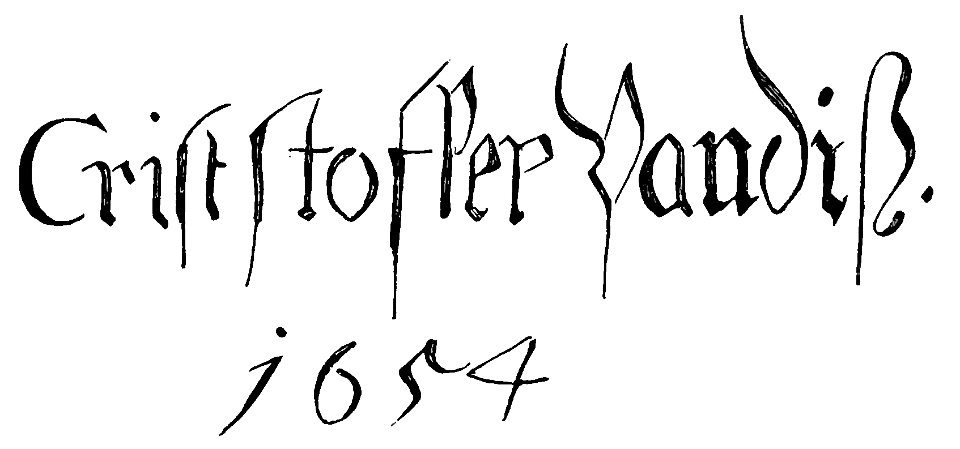 Criſtſtoffer Vandiß.
1654